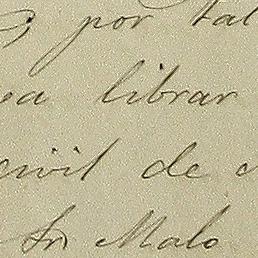 por tal
librar
civil de
Sr Malo